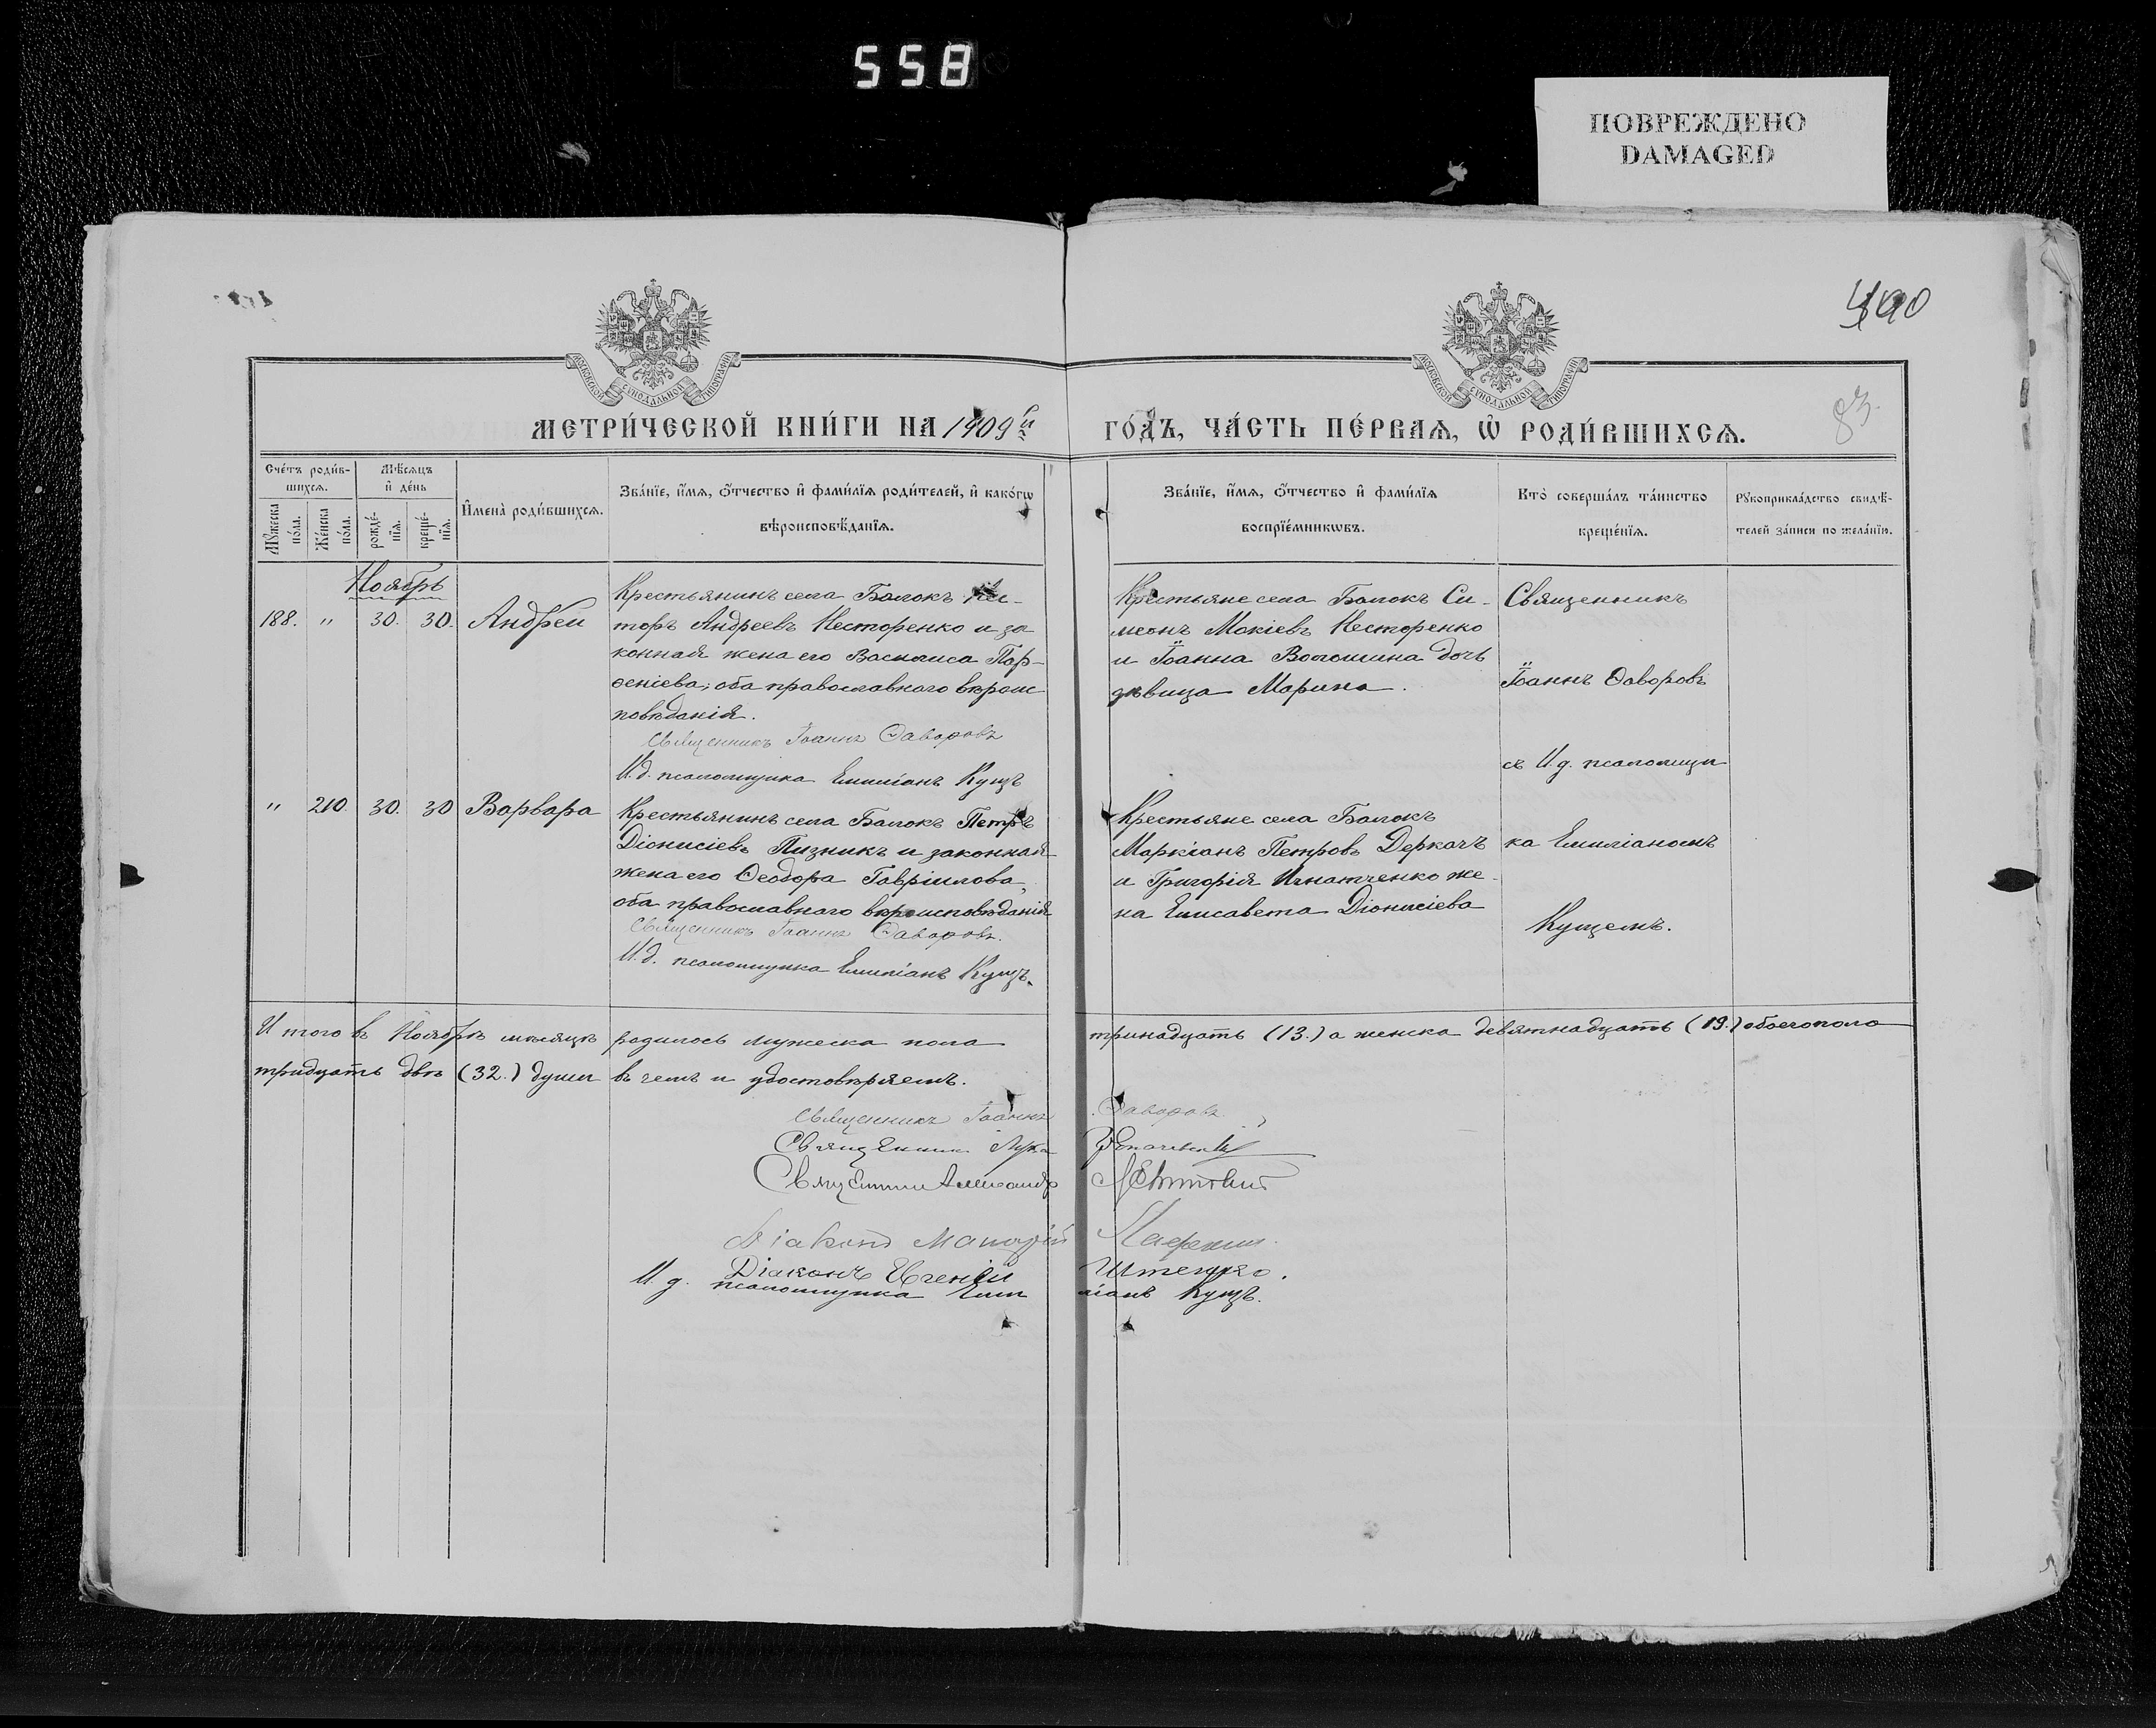 558
ПОВРЕЖДЕНО
DAMAGED
490
83.
МЕТРИ́ЧЕСКОЙ КНИ́ГИ НА 1909й
ГО́ДЪ, ЧА́СТЬ ПЕ́РВАѦ, Ѡ РОДИ́ВШИХСѦ.
МОСКОВСКОЙ СѴНОДАЛЬНОЙ ТИПОГРАФІИ
МОСКОВСКОЙ СѴНОДАЛЬНОЙ ТИПОГРАФІИ
Сче́тъ роди́в-
шихсѧ.
Мꙋ́жеска по́ла.
Же́нска по́ла.
Мѣ́сѧцъ
и҆ де́нь
рожде́-
нїѧ.
креще́-
нїѧ.
И҆мена̀ роди́вшихсѧ.
Зва́нїе, и҆́мѧ, ѻ҆́тчество и҆ фами́лїѧ роди́телей, и҆ како́гѡ
вѣроисповѣ́данїѧ.
Зва́нїе, и҆́мѧ, ѻ҆́тчество и҆ фами́лїѧ
воспрїе́мникѡвъ.
Кто̀ соверша́лъ та́инство
креще́нїѧ.
Рꙋкоприкла́дство свидѣ́-
телей за́писи по жела́нїю.
Ноябрь
188. " 30. 30. Андрей
Крестьянинъ села Балокъ
торъ Андреевъ Несторенко и за
конная жена его Василиса Пар-
ѳеніева, оба православнаго вѣроис
повѣданія.
Священникъ Іоаннъ Ѳаворовъ
И.д. псаломщика Емиліанъ Кущъ
Крестьяне села Балокъ Си-
меонъ Мокіевъ Несторенко
и Іоанна Волошина дочь
дѣвица Марина.
Священникъ
Іоаннъ Ѳаворовъ
съ И.д. псаломщи
" 210. 30. 30 Варвара
Крестьянинъ села Балокъ Петръ
Діонисіевъ Пизникъ и законная
жена его Ѳеодора Гавріилова,
оба православнаго вѣроисповѣданія
Священникъ Іоаннъ Ѳаворовъ.
И.д. псаломщика Емиліанъ Кущъ.
Крестьяне села Балокъ
Маркіанъ Петровъ Деркачъ
и Григорія Игнатченко же-
на Елисавета Діонисіева
ка Емиліаномъ
Кущемъ.
Итого въ Ноябрѣ мѣсяцѣ родилось мужеска пола тринадцать (13.) а женска девятнадцать (19.) обоего пола
тридцать двѣ (32.) души въ чемъ и удостовѣряемъ.
Священникъ Іоаннъ Ѳаворовъ
Священникъ Лука
Священник Александр
Діаконъ
Діаконъ Евгеній
И.д. псаломщика Емиліанъ Кущъ.